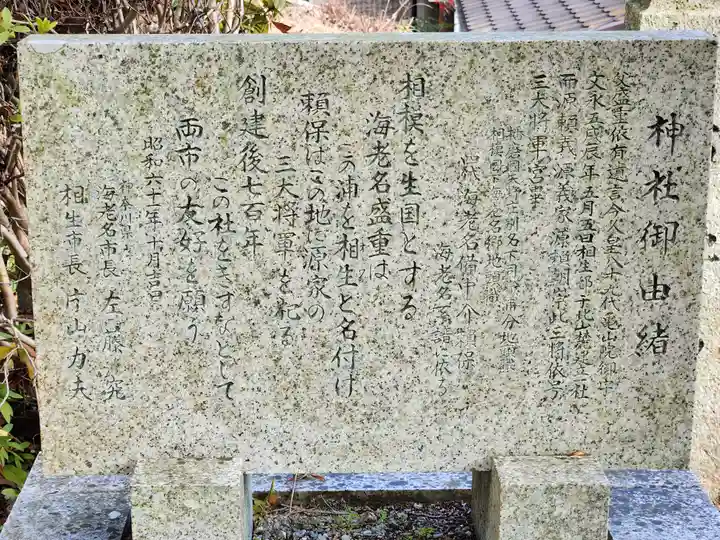 神社御由緒
父盛重依有遺言今人皇八十九代亀山院御宇
文永五戊辰年五月五日相生郡于北山麓建立社
而源頼義源義家源頼朝宮此三将依号
三大将軍宮畢
播磨国矢野庄別名下司 浦分地頭
相模国海老名郷地頭職
海老名備中介頼保
海老名家譜に依る
相模を生国とする
海老名盛重は
この浦を相生と名付け
頼保はこの地に源家の
三大将軍を祀る
創建後七百年
この社をきずなとして
両市の友好を願う
昭和六十一年十月吉日
神奈川県
海老名市長 左藤 究
相生市長 片山力夫